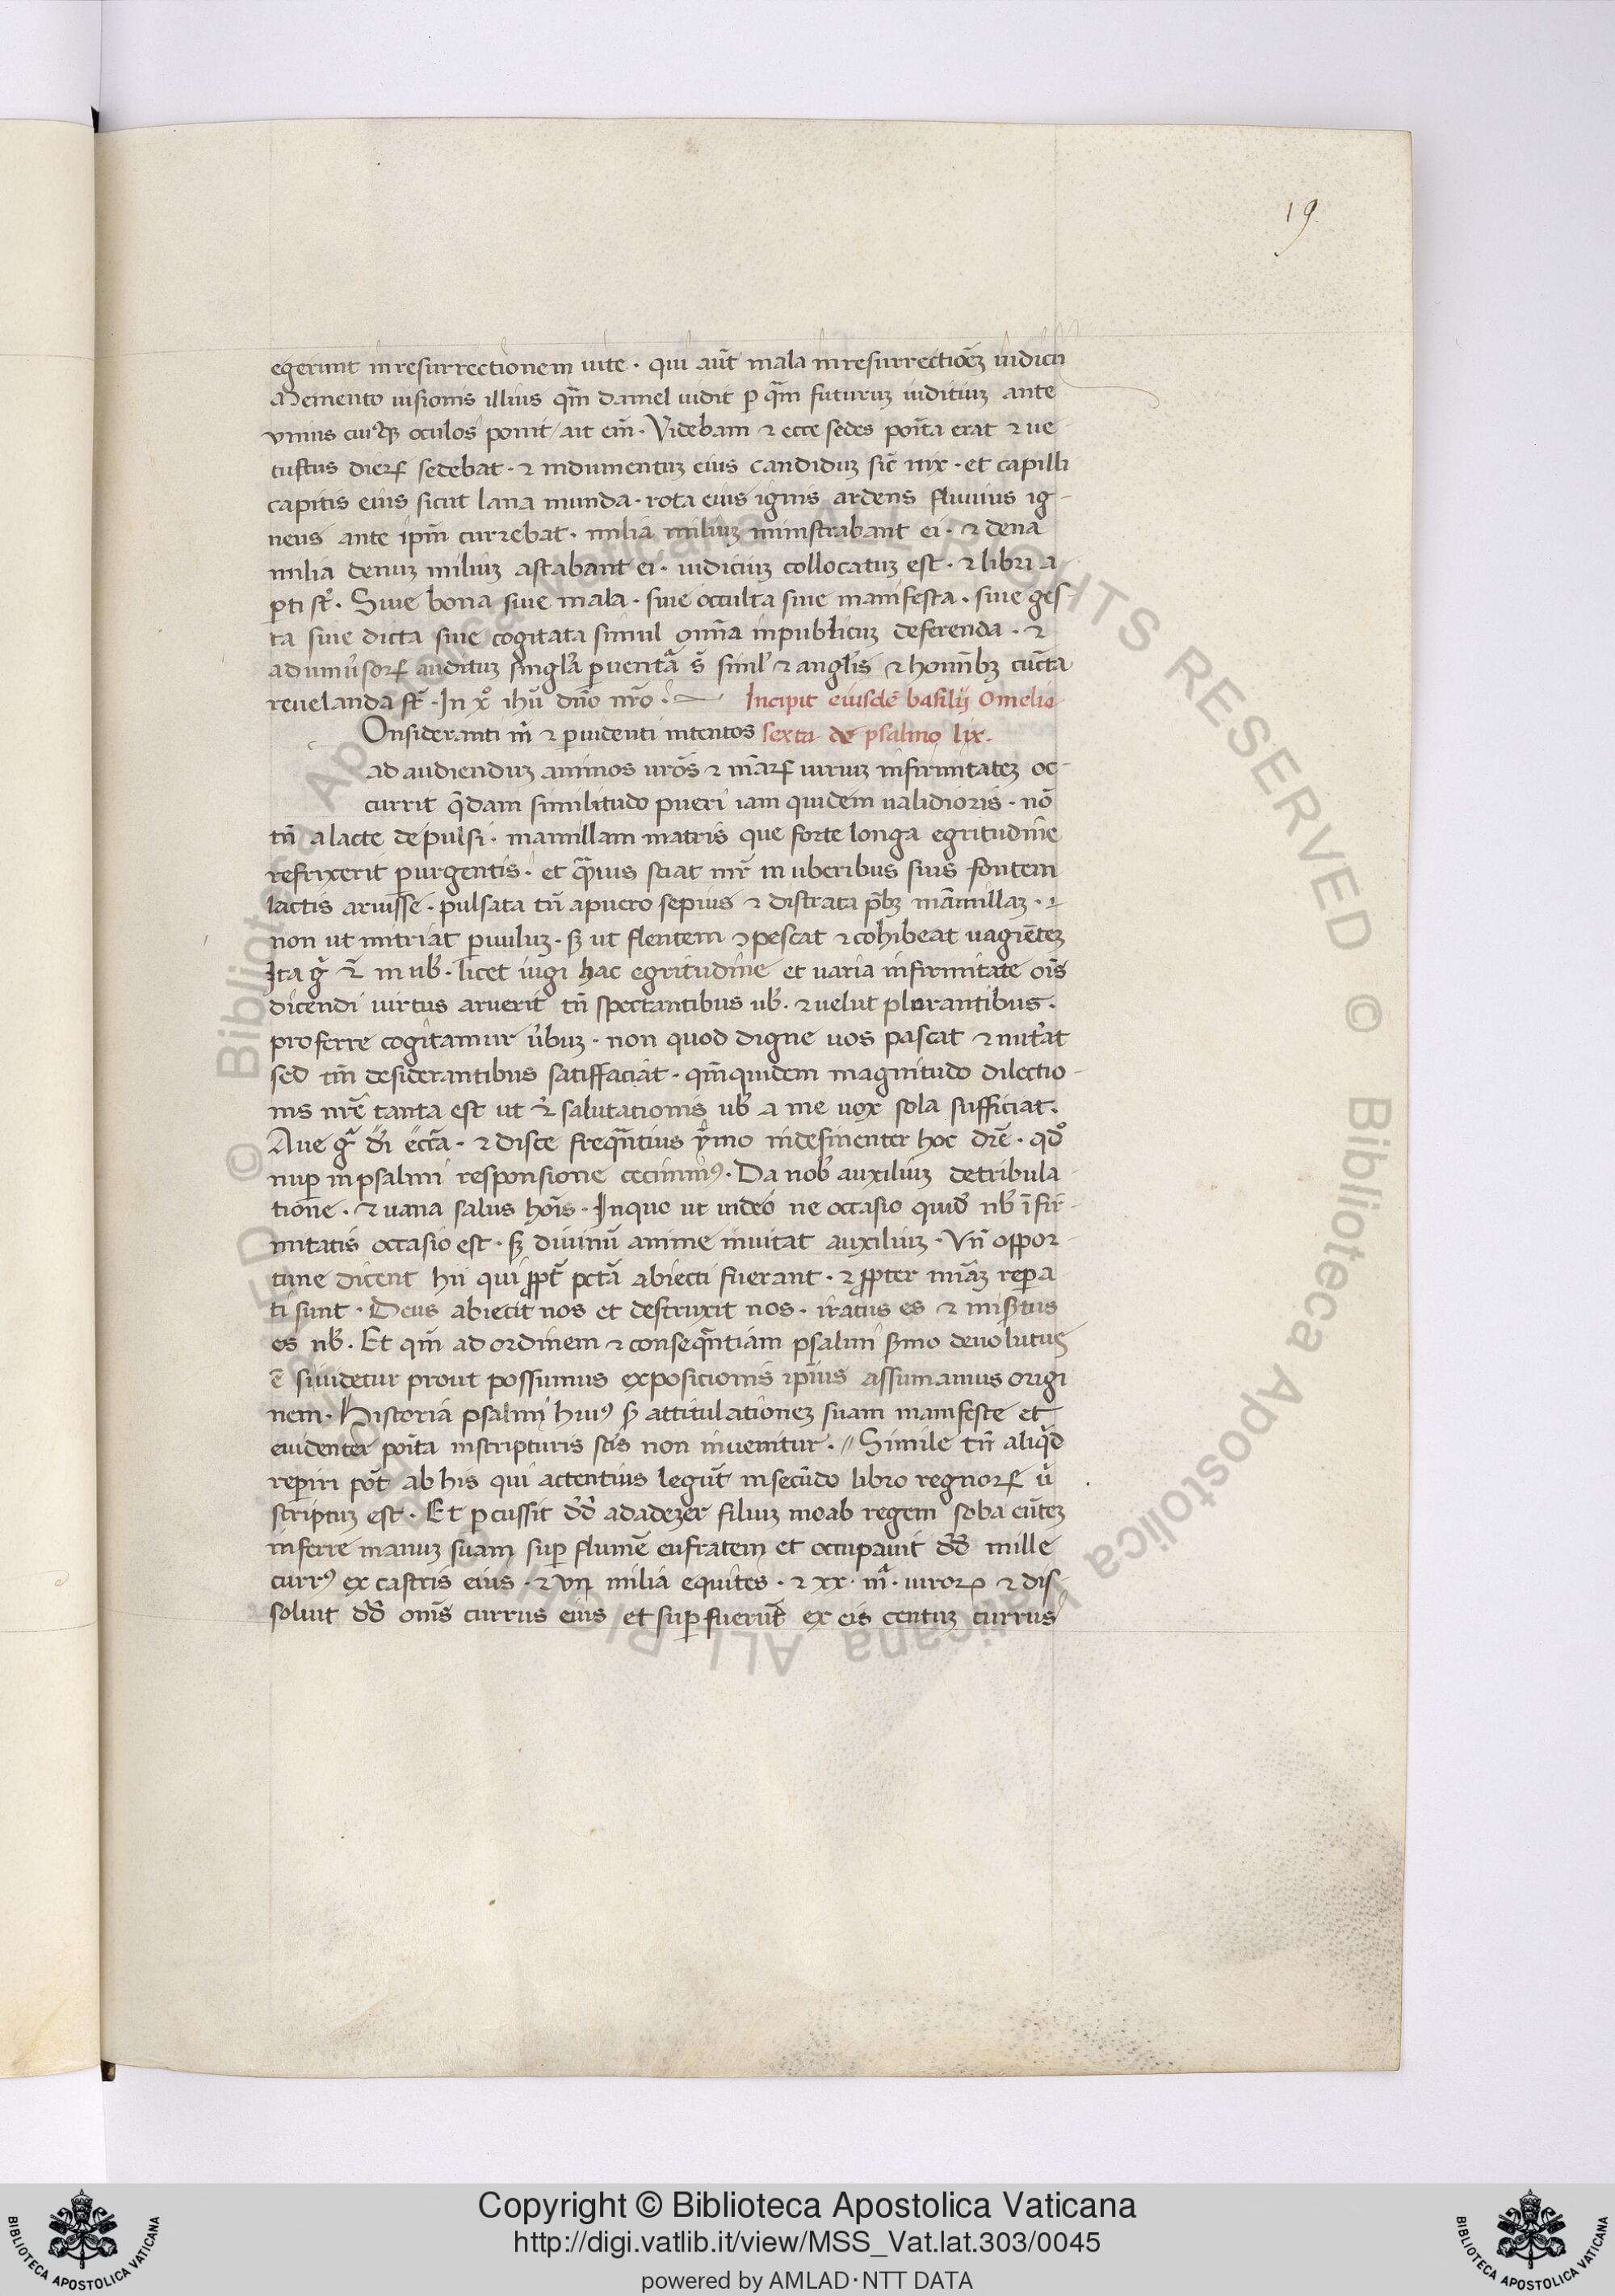 19
egerunt in resurrectionem uite · qui aut̄ mala in resurrectiōeꝫ iudicii
Memento uisionis illius qm̄ daniel uidit ꝑ qm̄ futuruꝫ iuditiuꝫ ante
vnius cuiusqꝫ oculos ponit / ait em̄ · Videbam ⁊ ecce sedes poīta erat ⁊ ue-
tustus dierꝝ sedebat · ⁊ indumentuꝫ eius candiduꝫ sic̄ nix · et capilli
capitis eius sicut lana munda · rota eius ignis ardens fluuius ig-
neus ante ip̄m currebat · milia miliuꝫ ministrabant ei · ⁊ dena
milia denuꝫ miliuꝫ astabant ei · iudiciuꝫ collocatuꝫ est · ⁊ libri a-
ꝑti st̄ · Siue bona siue mala · siue occulta siue manifesta · siue ges-
ta siue dicta siue cogitata simul om̄a in publicuꝫ deferenda · ⁊
ad uniuersorꝝ audituꝫ singl̄a ꝑuentā s̄ simil' ⁊ angl'is ⁊ homībꝫ cūcta
reuelanda st̄ · In xo ihū dn̄o nr̄o · Incipit eiusdē basilij Omelia
Onsideranti m̄ ⁊ ꝑuidenti intentos sexta de psalmo lix.
ad audienduꝫ animos uros̄ ⁊ mearꝝ uiriuꝫ infirmitateꝫ oc-
currit q̄dam similitudo pueri iam quidem ualidioris · nō
tn̄ a lacte depulsi · mamillam matris que forte longa egritudine
refrixerit ꝑurgentis · et q̄uis sciat mr̄ in uberibus suis fontem
lactis aruisse · pulsata tn̄ a puero sepius ⁊ distrata p̄bꝫ mamillaꝫ ·
non ut nutriat ꝑuuluꝫ · sꝫ ut flentem ꝯpescat ⁊ cohibeat uagiēteꝫ
Ita g̊ ⁊ in ub' · licet iugi hac egritudine et uaria infirmitate ois̄
dicendi uirtus aruerit tn̄ spectantibus ub' · ⁊ uelut plorantibus ·
proferre cogitamur ūbuꝫ · non quod digne uos pascat ⁊ nut'at
sed tm̄ desiderantibus satisffaciat · qm̄quidem magnitudo dilectio-
nis nrē tanta est ut ⁊ salutationis ub' a me uox sola sufficiat.
Aue g̊ di' ecc̄a · ⁊ disce freq̄ntius ymo indesinenter hoc drē · qd°
nuꝑ in psalmi responsione cecinimꝰ · Da nob' auxiliuꝫ de tribula-
tione · ⁊ uana salus hois̄ · In quo ut uideo ne occasio quid' nb' ifir-
mitatis occasio est · sꝫ diuinū anime inuitat auxiliuꝫ · Vn̄ oppor-
tune dicent hii qui ꝓpt̄ pctā abiecti fuerant · ⁊ ꝓpter mīaꝫ reꝑa
ti sunt · Deus abiecit nos et destruxit nos · iratus es ⁊ misertus
es nb' · Et qm̄ ad ordinem ⁊ conseq̄ntiam psalmi s̄mo deuolutus
ē si uidetur prout possumus expositionis ip̄ius assumamus origi
nem · Historia psalmi huiꝰ s̄ attitulationeꝫ suam manifeste et
euidenter poīta in scripturis sc̄is non inuenitur · // Simile tn̄ aliq̄d
reꝑiri pōt ab his qui attentius legūt in secūdo libro regnorꝝ ū
scriptuꝫ est · Et ꝑcussit dd̄ adadezer filiuꝫ moab regem soba eūteꝫ
inferre manuꝫ suam suꝑ flumē eufratem et occupauit dd̄ mille
currꝰ ex castris eius · ⁊ vii milia equites · ⁊ xx · m̄ · uiroꝝ ⁊ dis-
soluit dd̄ om̄s currus eius et suꝑfuerūt ex eis centuꝫ currus
Copyright © Biblioteca Apostolica Vaticana
http://digi.vatlib.it/view/MSS_Vat.lat.303/0045
powered by AMLAD · NTT DATA
BIBLIOTECA APOSTOLICA VATICANA
BIBLIOTECA APOSTOLICA VATICANA
© Biblioteca Apostolica Vaticana ALL RIGHTS RESERVED © Biblioteca Apostolica Vaticana ALL RIGHTS RESERVED